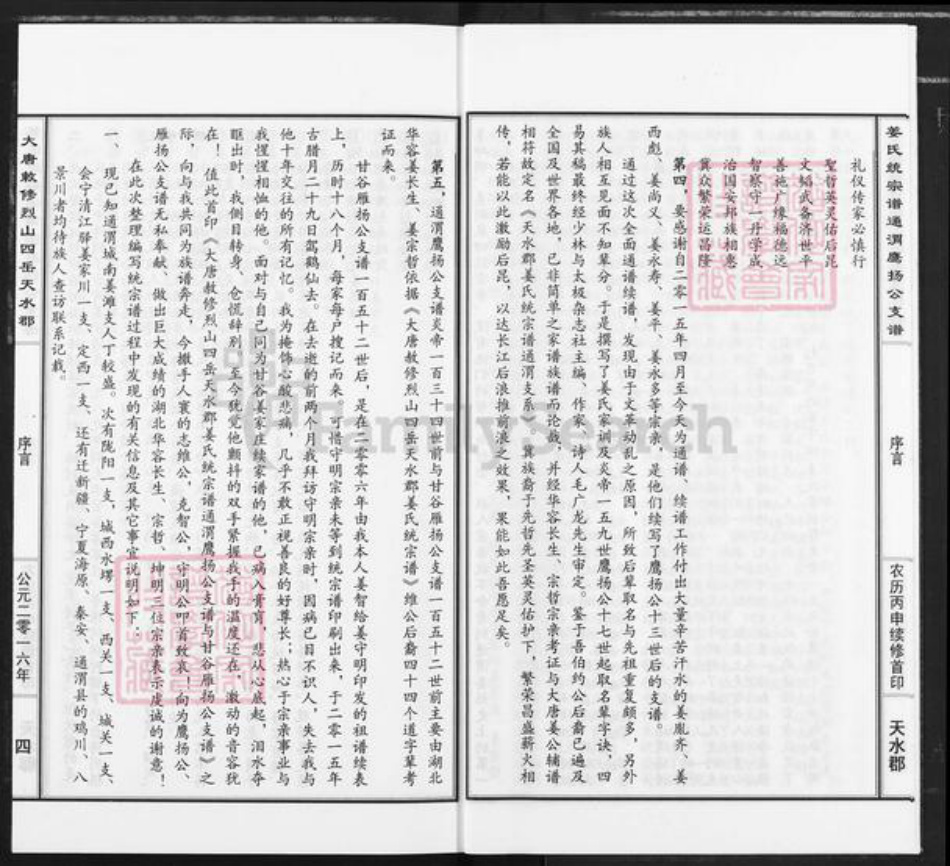 姜氏统宗谱通渭鹰扬公支谱
序言
农历丙申续修首印
天水郡
礼仪传家必慎行
圣哲英灵佑后昆
文韬武备济世平
善施广缘福德远
智察守一丹学成
治国安邦族相惠
冀众繁荣运昌隆
第四，要感谢自二零一五年四月至今天为通谱、续谱工作付出大量辛苦汗水的姜胤齐、姜
西彪、姜尚义、姜永寿、姜平、姜永多等宗亲，是他们续写了鹰扬公十三世后的支谱。
通过这次全面通谱续谱，发现由于文革动乱之原因，所致后辈取名与先祖重复颇多，另外
族人相互见面不知辈分。于是撰写了姜氏家训及炎帝一五九世鹰扬公十七世起取名辈字诀，四
易其稿最终经少林与太极杂志社主编、作家、诗人毛广龙先生审定。鉴于吾伯约公后裔已遍及
全国及世界各地，已非简单之家谱族谱而论哉，并经华容长生、宗哲宗亲考证与大唐姜公辅谱
相符故定名《天水郡姜氏统宗谱通渭支系》冀族裔于先哲先圣英灵佑护下，繁荣昌盛薪火相
传，若能以此激励后昆，以达长江后浪推前浪之效果，果能如此吾愿足矣。
第五，通渭鹰扬公支谱炎帝一百三十四世前与甘谷雁扬公支谱一百五十二世前主要由湖北
华容姜长生、姜宗哲依据《大唐敕修烈山四岳天水郡姜氏统宗谱》维公后裔四十四个道字辈考
证而来。
甘谷雁扬公支谱一百五十二世后，是在二零零六年由我本人姜智给姜守明印发的祖谱续表
上，历时十八个月，每家每户搜记而来。可惜守明宗亲未等到统宗谱印刷出来，于二零一五年
古腊月二十九日驾鹤仙去。在去逝的前两个月我拜访守明宗亲时，因病已目不识人，失去我与
他十年交往的所有记忆。我为掩饰心酸悲痛，几乎不敢正视善良的好尊长；热心于宗亲事业与
我惺惺相恤的他。面对与自己同为甘谷姜家庄续家谱的他，已病入膏肓，悲从心底起，泪水夺
眶出时，我侧目转身、仓慌辞别，至今犹觉他颤抖的双手紧握我手的温度还在，激动的音容犹
在！值此首印《大唐敕修烈山四岳天水郡姜氏统宗谱通渭鹰扬公支谱与甘谷雁扬公支谱》之
际，向与我共同为族谱奔走，今撒手人寰的志维公，克智公，守明公叩首致哀！向为鹰扬公、
雁扬公支谱无私奉献、做出巨大成绩的湖北华容长生、宗哲、坤明三位宗亲表示虔诚的谢意！
在此次整理编写统宗谱过程中发现的有关信息及其它事宜说明如下：
一、现已知通渭城南姜滩支人丁较盛。次有陇阳一支，城西水塄一支、西关一支、城关一支、
会宁清江驿姜家川一支、定西一支、还有迁新疆、宁夏海原、秦安、通渭县的鸡川、八
景川者均待族人查访联系记载。
大唐敕修烈山四岳天水郡
序言
公元二零一六年
四
FamilySearch